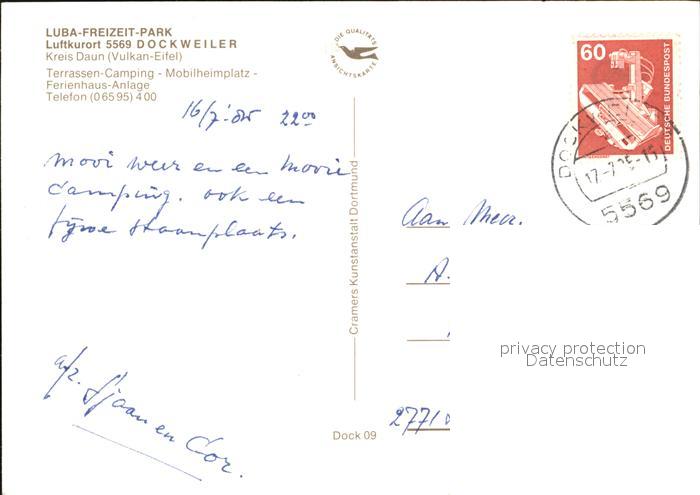 LUBA-FREIZEIT-PARK
Luftkurort 5569 DOCKWEILER
Kreis Daun (Vulkan-Eifel)
Terrassen-Camping - Mobilheimplatz -
Ferienhaus-Anlage
Telefon (06595) 400
16/7-'85 2200
Mooi weer en een mooie
Camping. ook een
fijne staanplaats.
afz. Sjaan en Cor.
DIE QUALITÄTS
ANSICHTSKARTE
Cramers Kunstanstalt Dortmund
Dock 09
60
DEUTSCHE BUNDESPOST
17-7.85-15
5569
Aan Mevr.
A.
2771
privacy protection
Datenschutz